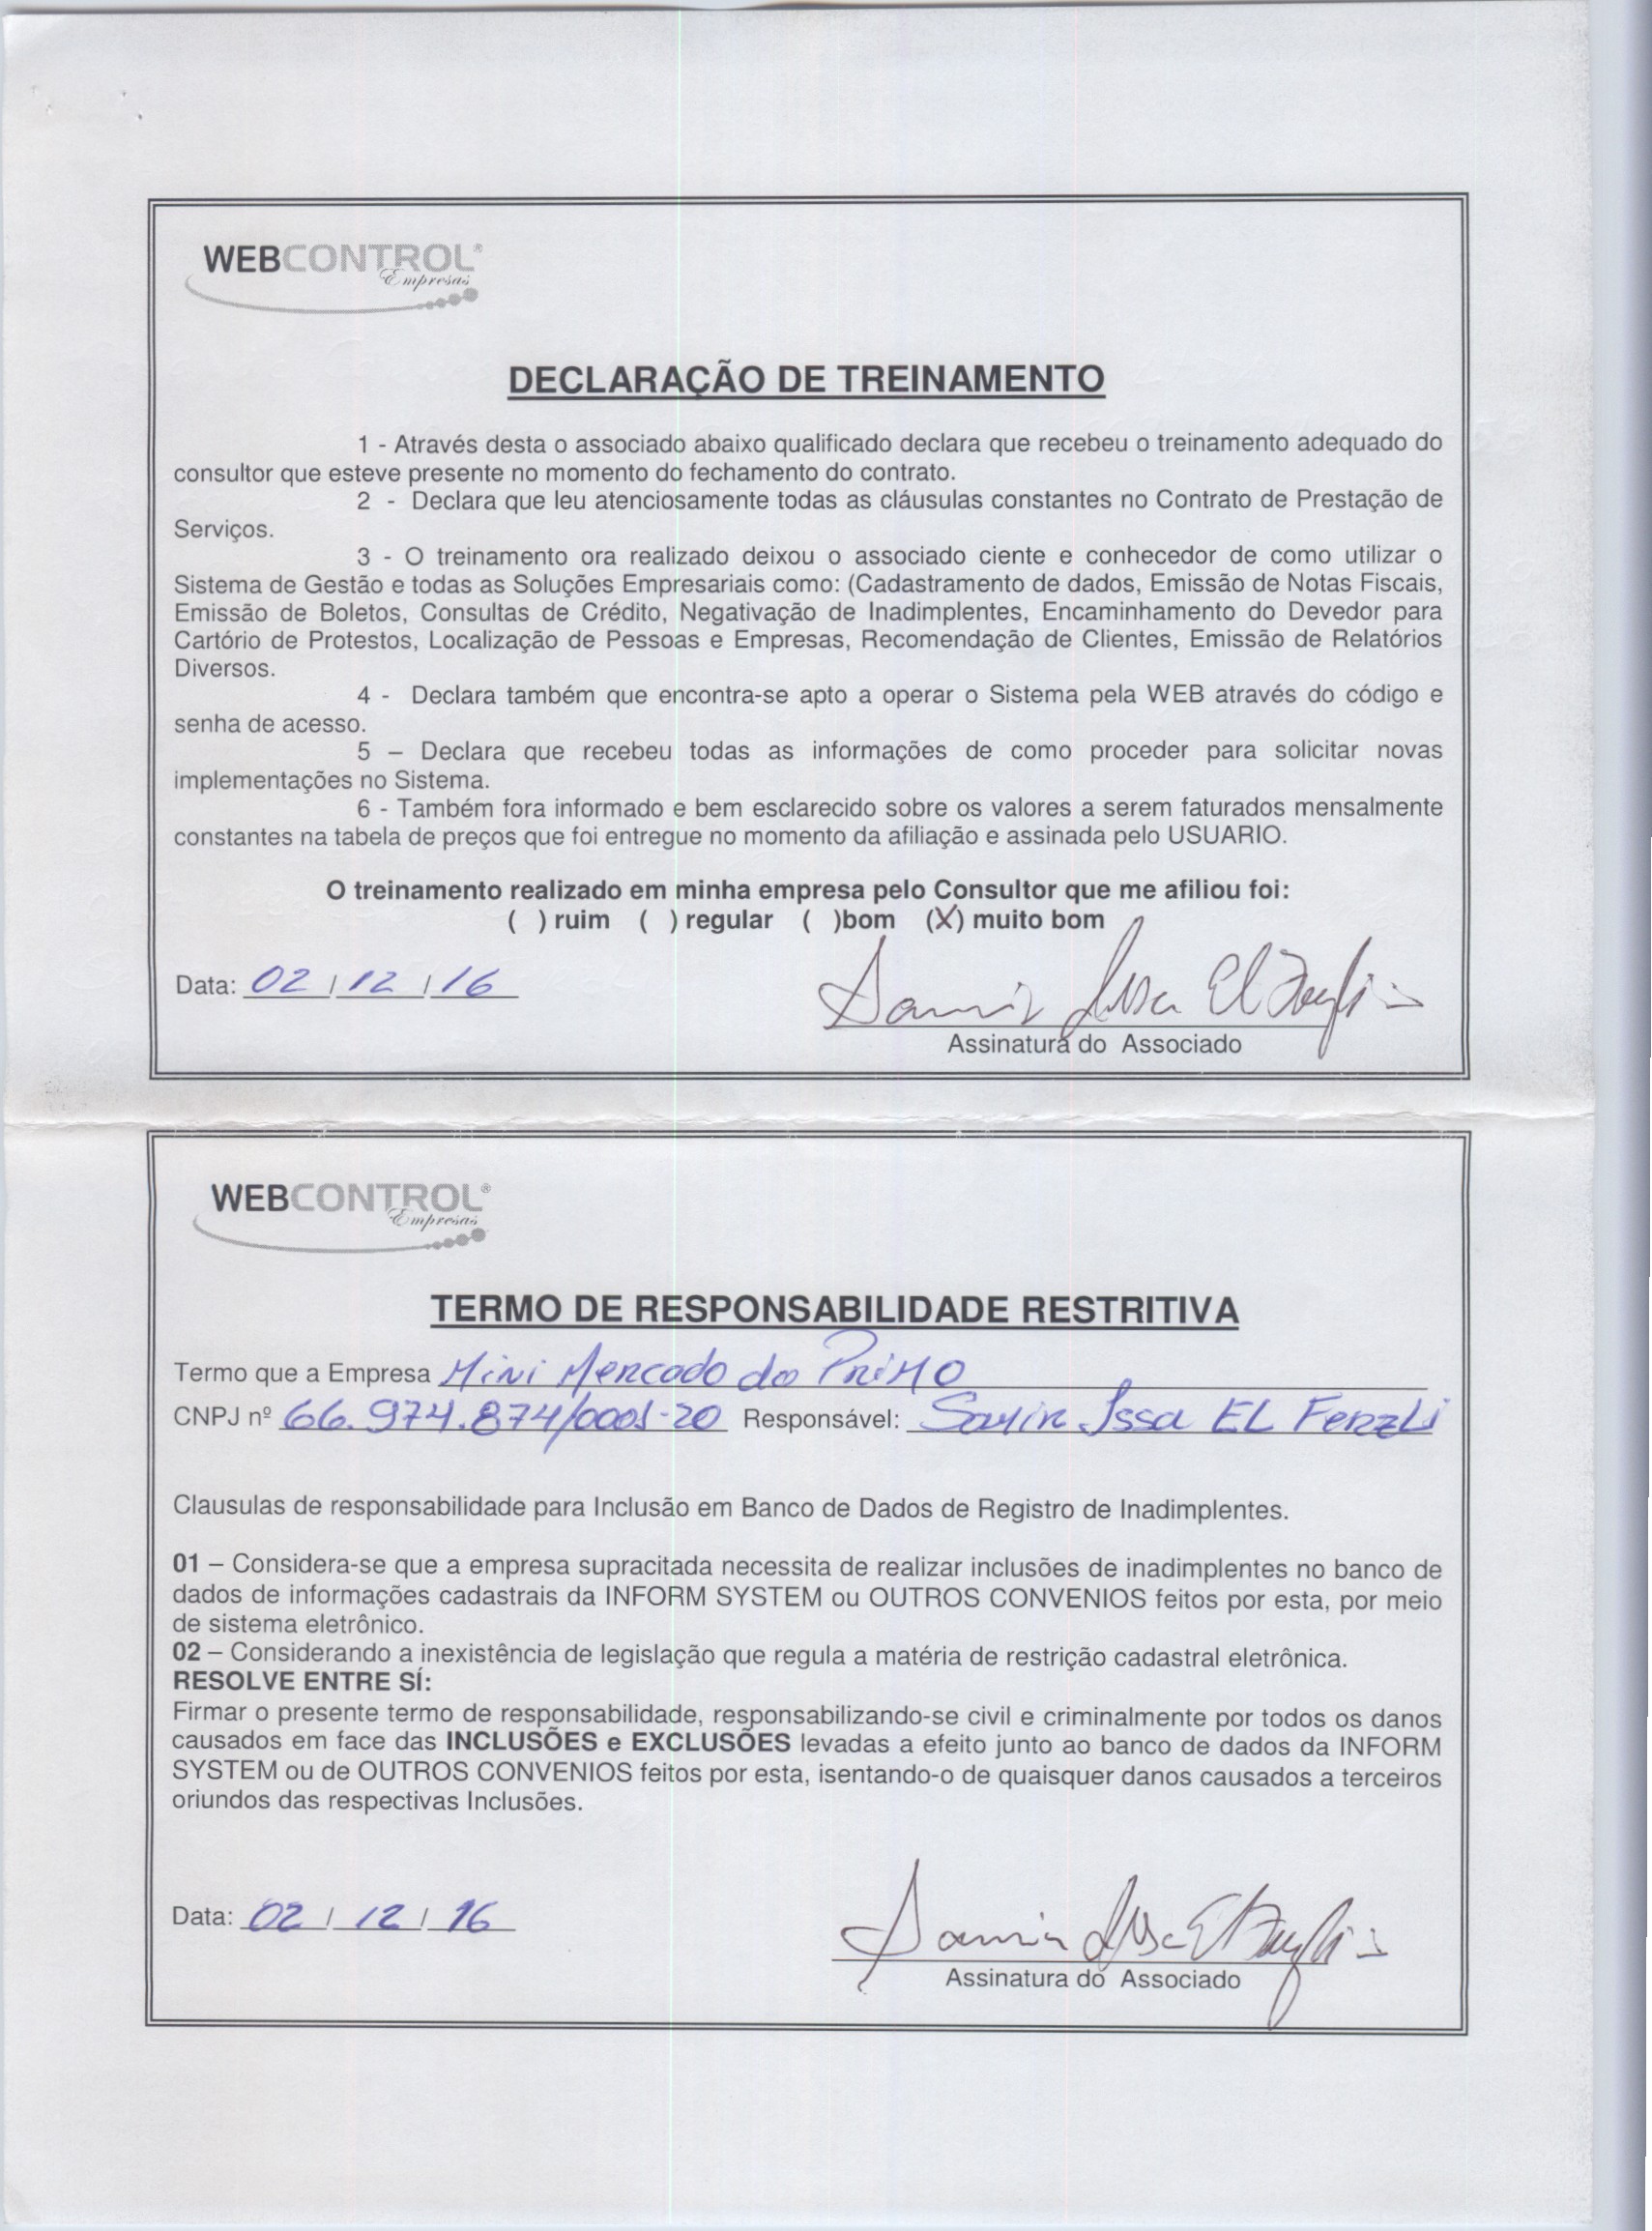 WEBCONTROL®
Empresas
DECLARAÇÃO DE TREINAMENTO
1 - Através desta o associado abaixo qualificado declara que recebeu o treinamento adequado do
consultor que esteve presente no momento do fechamento do contrato.
2 - Declara que leu atenciosamente todas as cláusulas constantes no Contrato de Prestação de
Serviços.
3 - O treinamento ora realizado deixou o associado ciente e conhecedor de como utilizar o
Sistema de Gestão e todas as Soluções Empresariais como: (Cadastramento de dados, Emissão de Notas Fiscais,
Emissão de Boletos, Consultas de Crédito, Negativação de Inadimplentes, Encaminhamento do Devedor para
Cartório de Protestos, Localização de Pessoas e Empresas, Recomendação de Clientes, Emissão de Relatórios
Diversos.
4 - Declara também que encontra-se apto a operar o Sistema pela WEB através do código e
senha de acesso.
5 – Declara que recebeu todas as informações de como proceder para solicitar novas
implementações no Sistema.
6 - Também fora informado e bem esclarecido sobre os valores a serem faturados mensalmente
constantes na tabela de preços que foi entregue no momento da afiliação e assinada pelo USUARIO.
O treinamento realizado em minha empresa pelo Consultor que me afiliou foi:
( ) ruim ( ) regular ( )bom (X) muito bom
Data: 02 / 12 / 16
Samir Issa El
Assinatura do Associado
WEBCONTROL®
Empresas
TERMO DE RESPONSABILIDADE RESTRITIVA
Termo que a Empresa Mini Mercado do Primo
CNPJ nº 66.974.874/0001-20 Responsável: Samir Issa EL Ferzli
Clausulas de responsabilidade para Inclusão em Banco de Dados de Registro de Inadimplentes.
01 – Considera-se que a empresa supracitada necessita de realizar inclusões de inadimplentes no banco de
dados de informações cadastrais da INFORM SYSTEM ou OUTROS CONVENIOS feitos por esta, por meio
de sistema eletrônico.
02 – Considerando a inexistência de legislação que regula a matéria de restrição cadastral eletrônica.
RESOLVE ENTRE SÍ:
Firmar o presente termo de responsabilidade, responsabilizando-se civil e criminalmente por todos os danos
causados em face das INCLUSÕES e EXCLUSÕES levadas a efeito junto ao banco de dados da INFORM
SYSTEM ou de OUTROS CONVENIOS feitos por esta, isentando-o de quaisquer danos causados a terceiros
oriundos das respectivas Inclusões.
Data: 02 / 12 / 16
Samir Issa El
Assinatura do Associado